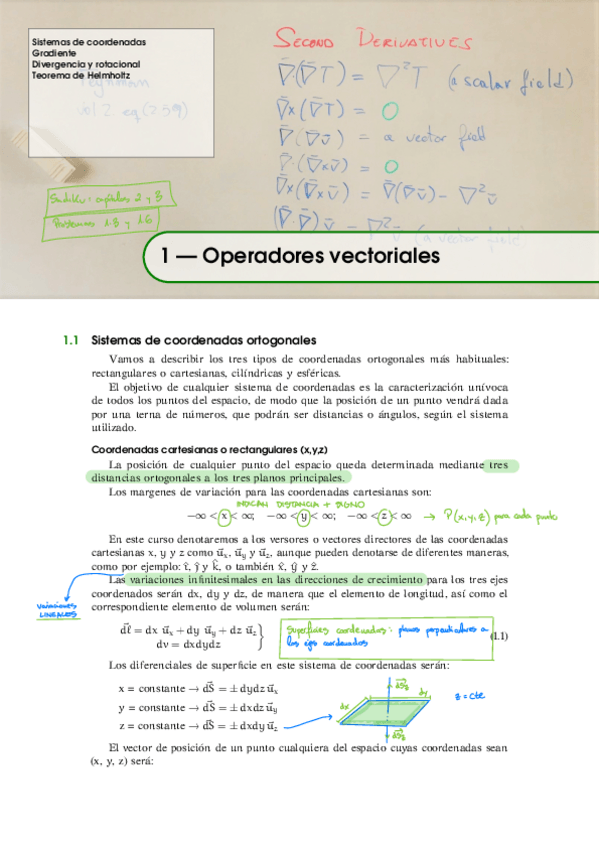 Sistemas de coordenadas
Gradiente
Divergencia y rotacional
Teorema de Helmholtz
Feynman
vol 2 eq (2.59)
SECOND DERIVATIVES
∇̄(∇̄T) = ∇²T (a scalar field)
∇̄x(∇̄T) = 0
∇̄(∇̄v̄) = a vector field
∇̄·(∇̄xv̄) = 0
∇̄x(∇̄xv̄) = ∇̄(∇̄v̄) - ∇²v̄
(∇̄·∇̄)v̄ = ∇²v̄ (a vector field)
Sadiku: capítulos 2 y 3
Problemas 1.3 y 1.6
1 — Operadores vectoriales
1.1 Sistemas de coordenadas ortogonales
Vamos a describir los tres tipos de coordenadas ortogonales más habituales:
rectangulares o cartesianas, cilíndricas y esféricas.
El objetivo de cualquier sistema de coordenadas es la caracterización unívoca
de todos los puntos del espacio, de modo que la posición de un punto vendrá dada
por una terna de números, que podrán ser distancias o ángulos, según el sistema
utilizado.
Coordenadas cartesianas o rectangulares (x,y,z)
La posición de cualquier punto del espacio queda determinada mediante tres
distancias ortogonales a los tres planos principales.
Los margenes de variación para las coordenadas cartesianas son:
INDICAN DISTANCIA + SIGNO
−∞ < x < ∞; −∞ < y < ∞; −∞ < z < ∞ → P(x,y,z) para cada punto
En este curso denotaremos a los versores o vectores directores de las coordenadas
cartesianas x, y y z como u⃗x, u⃗y y u⃗z, aunque pueden denotarse de diferentes maneras,
como por ejemplo: î, ĵ y k̂, o también x̂, ŷ y ẑ.
Las variaciones infinitesimales en las direcciones de crecimiento para los tres ejes
coordenados serán dx, dy y dz, de manera que el elemento de longitud, así como el
correspondiente elemento de volumen serán:
VARIACIONES
LINEALES
dl⃗ = dx u⃗x + dy u⃗y + dz u⃗z
dv = dxdydz
Superficies coordenadas: planos perpendiculares a
los ejes coordenados
(1.1)
Los diferenciales de superficie en este sistema de coordenadas serán:
x = constante → dS⃗ = ± dydz u⃗x
y = constante → dS⃗ = ± dxdz u⃗y
z = constante → dS⃗ = ± dxdy u⃗z
dS⃗z
dx
dy
z = cte
dS⃗z
El vector de posición de un punto cualquiera del espacio cuyas coordenadas sean
(x, y, z) será: